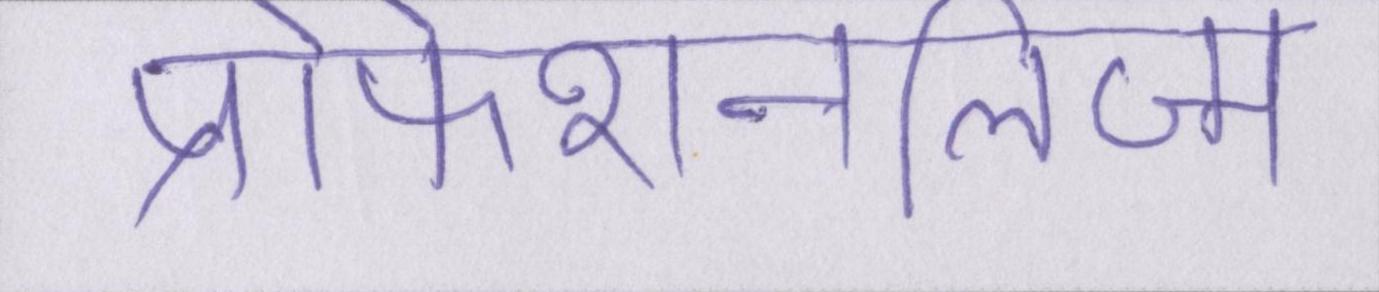 प्रोफेशनलिज्म